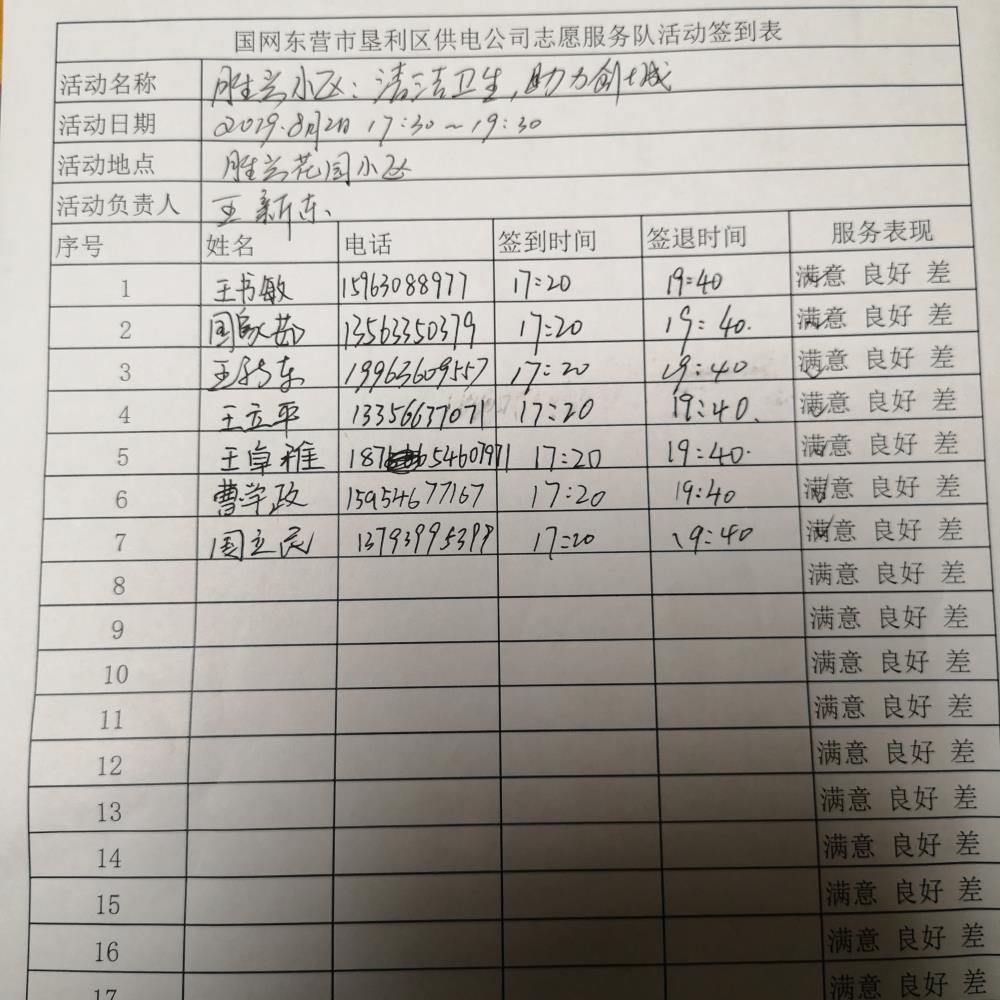 国网东营市垦利区供电公司志愿服务队活动签到表
活动名称 胜兴小区：清洁卫生，助力创城
活动日期 2019.8月2日 17:30～19:30
活动地点 胜兴花园小区
活动负责人 王新东
序号 姓名 电话 签到时间 签退时间 服务表现
1 王书敏 15963088977 17:20 19:40 满意 良好 差
2 国 茹 13563350379 17:20 19:40 满意 良好 差
3 王 东 19963609557 17:20 19:40 满意 良好 差
4 王立平 13356637071 17:20 19:40 满意 良好 差
5 王卓雅 17:20 19:40 满意 良好 差
6 曹学政 15954677167 17:20 19:40 满意 良好 差
7 国立民 17:20 19:40 满意 良好 差
8 满意 良好 差
9 满意 良好 差
10 满意 良好 差
11 满意 良好 差
12 满意 良好 差
13 满意 良好 差
14 满意 良好 差
15 满意 良好 差
16 满意 良好 差
17 满意 良好 差